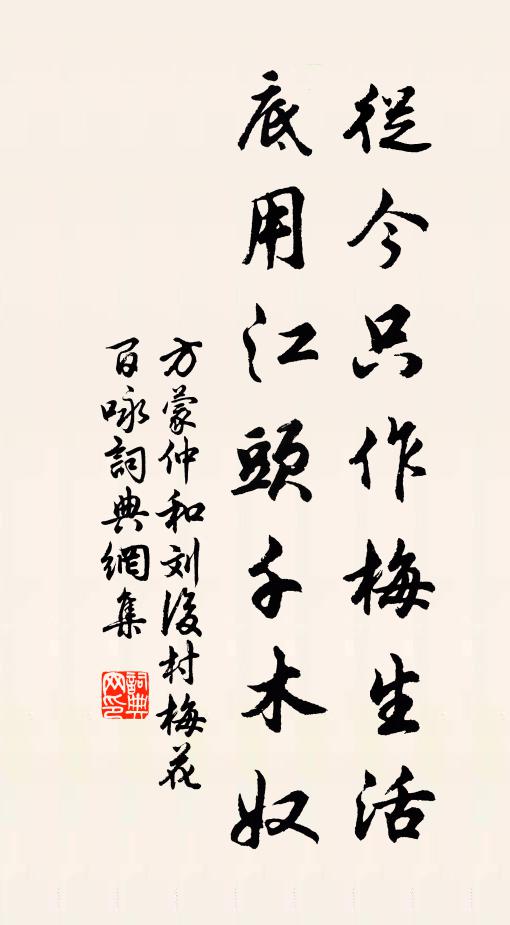 從今只作梅生活
底用江頭千木奴
方蒙仲和刘後村梅花
百咏詞典網集
詞典
网印